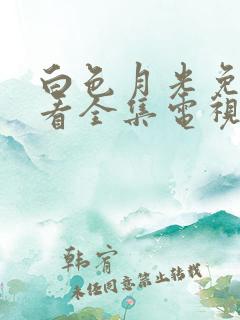 白色月光免
看全集電視
韩宥
未经同意禁止转载